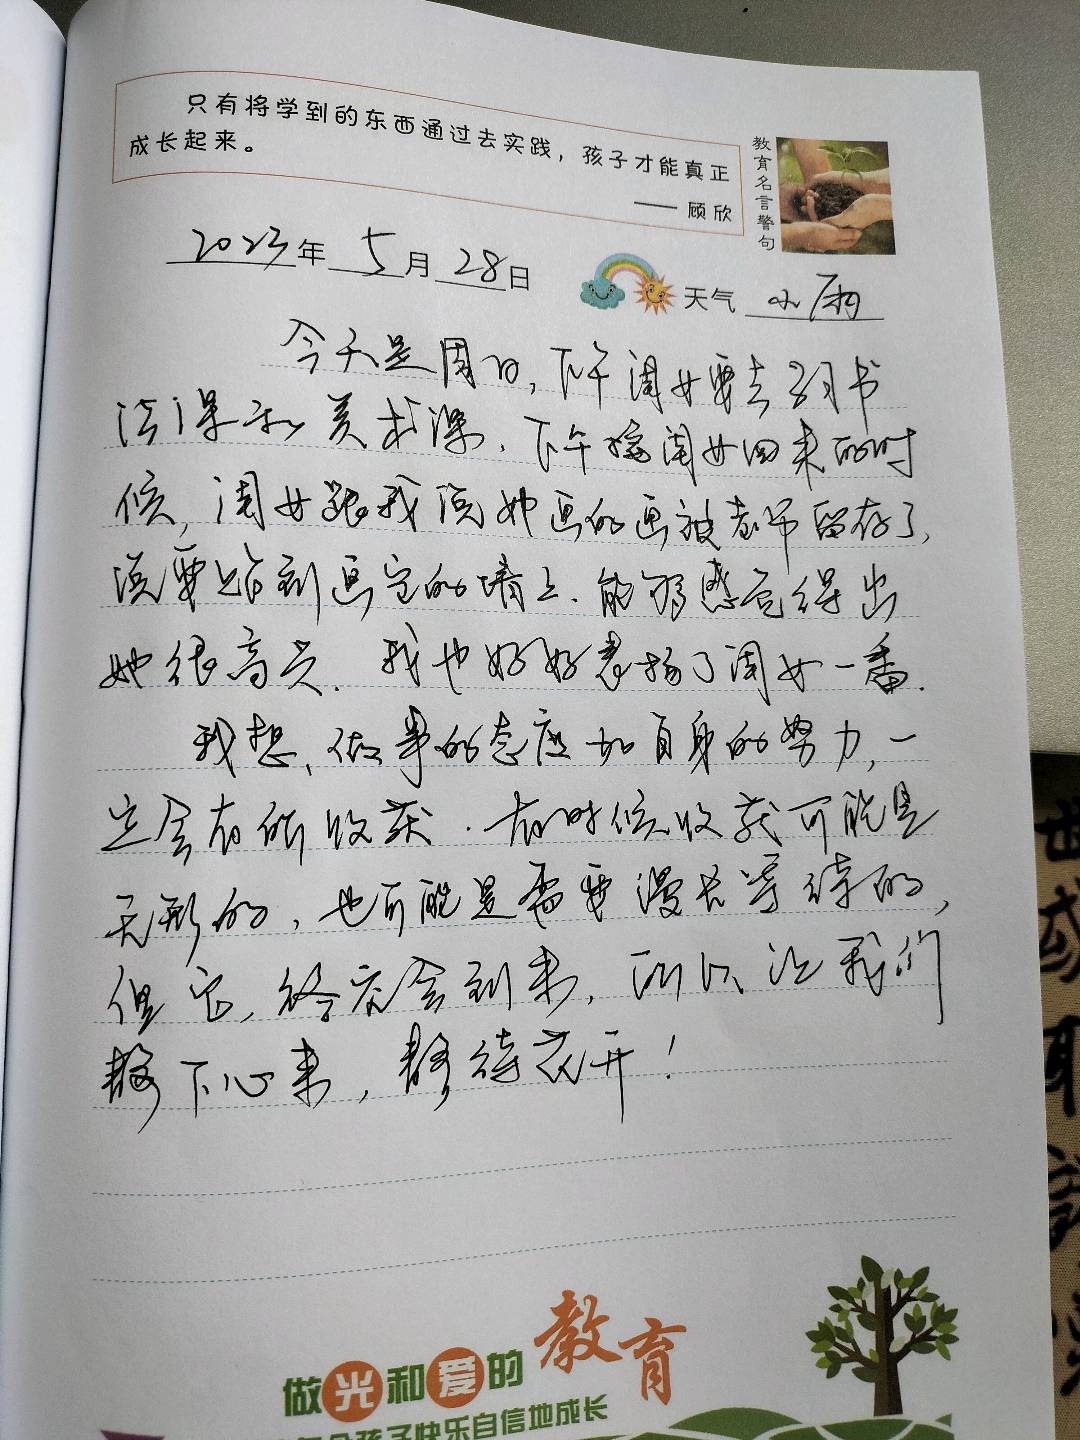 只有将学到的东西通过去实践，孩子才能真正
成长起来。
—— 顾欣
教育名言警句
2023年 5月 28日
天气 小雨
今天是周日，下午闺女要去学习书
法课和美术课．下午接闺女回来的时
候，闺女跟我说她画的画被老师留存了，
说要贴到画室的墙上．能够感觉得出
她很高兴．我也好好表扬了闺女一番．
我想，做事的态度加自身的努力，一
定会有所收获．有时候收获可能是
无形的，也可能是需要漫长等待的，
但它，终究会到来，所以让我们
静下心来，静待花开！
做光和爱的教育
孩子快乐自信地成长